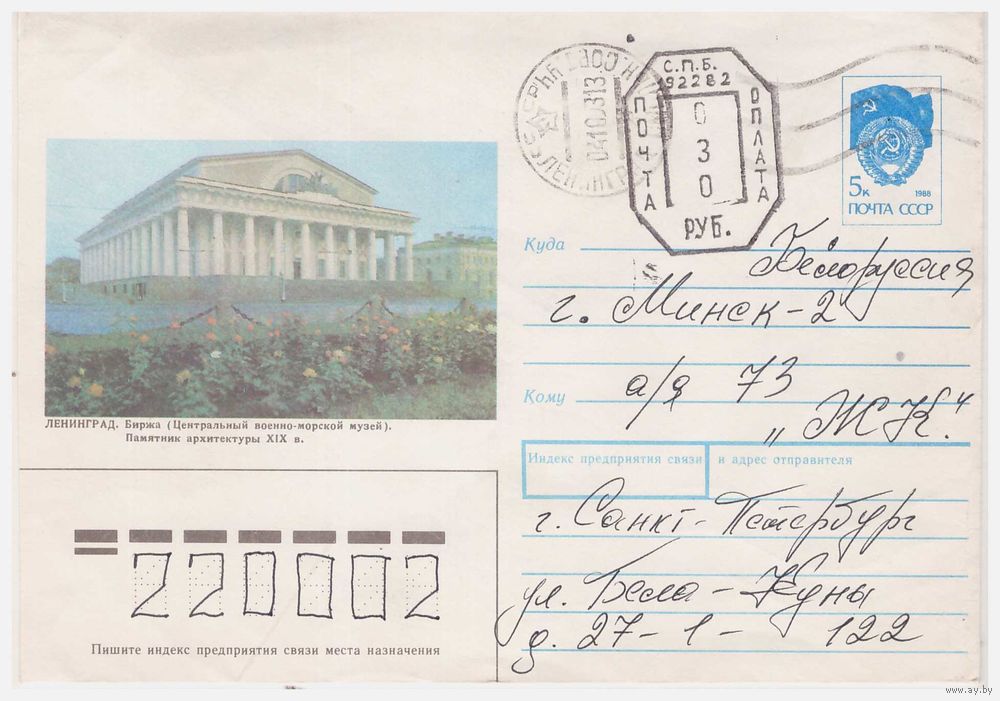 С.П.Б.
192282
ПОЧТА
ОПЛАТА
0
3
0
РУБ.
СССР
ЛЕНИНГР
04109313
5к
1988
ПОЧТА СССР
Куда
Белоруссия
г. Минск-2
а/я 73
Кому
„ЖК“
ЛЕНИНГРАД. Биржа (Центральный военно-морской музей).
Памятник архитектуры XIX в.
Индекс предприятия связи и адрес отправителя
г. Санкт-Петербург
ул. Бела-Куны
д. 27-1- 122
220002
Пишите индекс предприятия связи места назначения
www.ay.by